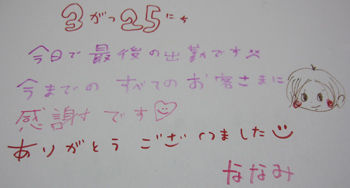 3がつ25にち
今日で最後の出勤です
今までのすべてのお客さまに
感謝です♡
ありがとうございました
ななみ